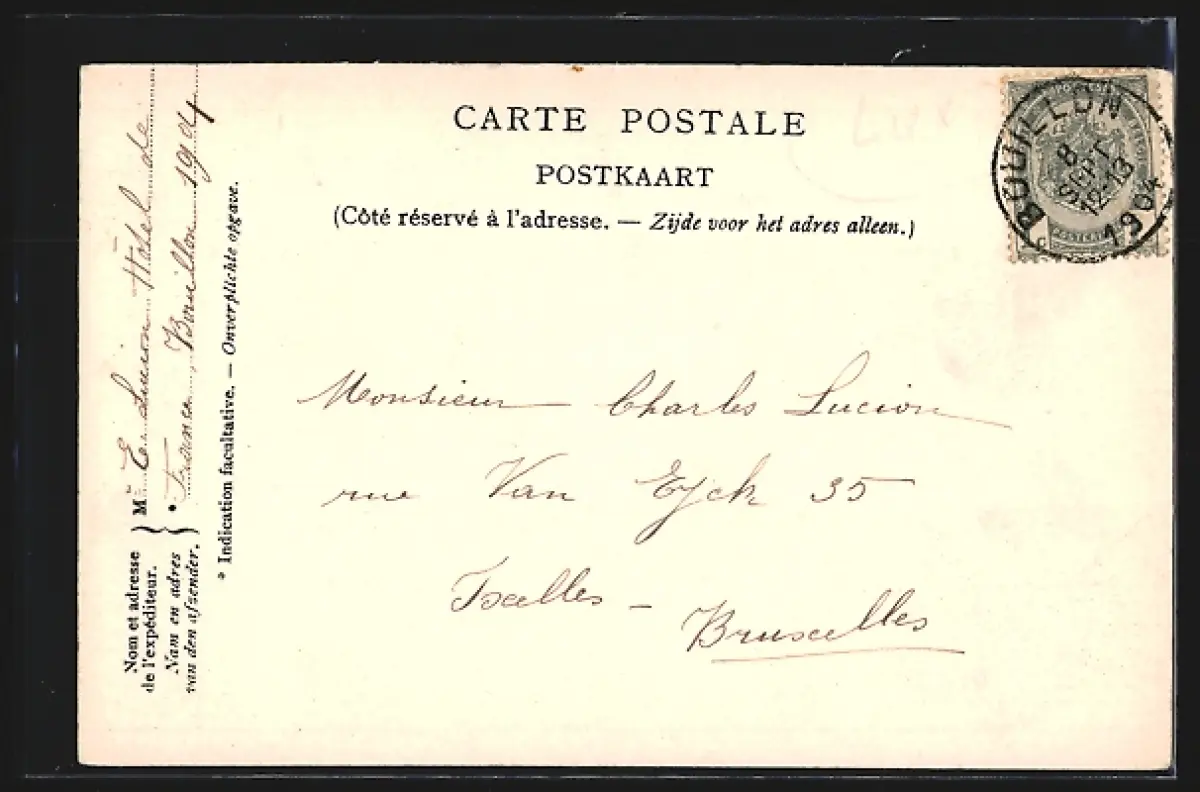 CARTE POSTALE
POSTKAART
(Côté réservé à l'adresse. — Zijde voor het adres alleen.)
BOUILLON
8
SEPT
12-13
1904
Monsieur Charles Lucion
rue Van Eyck 35
Ixelles - Bruxelles
Nom et adresse
de l'expéditeur.
Nam en adres
van den afzender.
M E. Lucion Hôtel de
* France Bouillon 1904
* Indication facultative. — Onverplichte opgave.